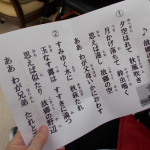 ♪ 故郷
①
夕空はれて 秋風吹
月かげ落ちて 鈴虫鳴
思えば遠し 故郷の空
ああ わが父母 いかにおわす
②
すみゆく水に
玉なす露は すすきに満つ
思えば似たり 故郷の野辺
ああ わが兄弟 たれと